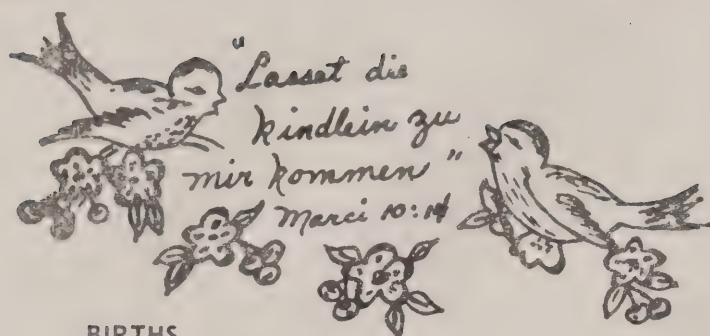 "Lasset die
kindlein zu
mir kommen"
Marci 10:14
BIRTHS